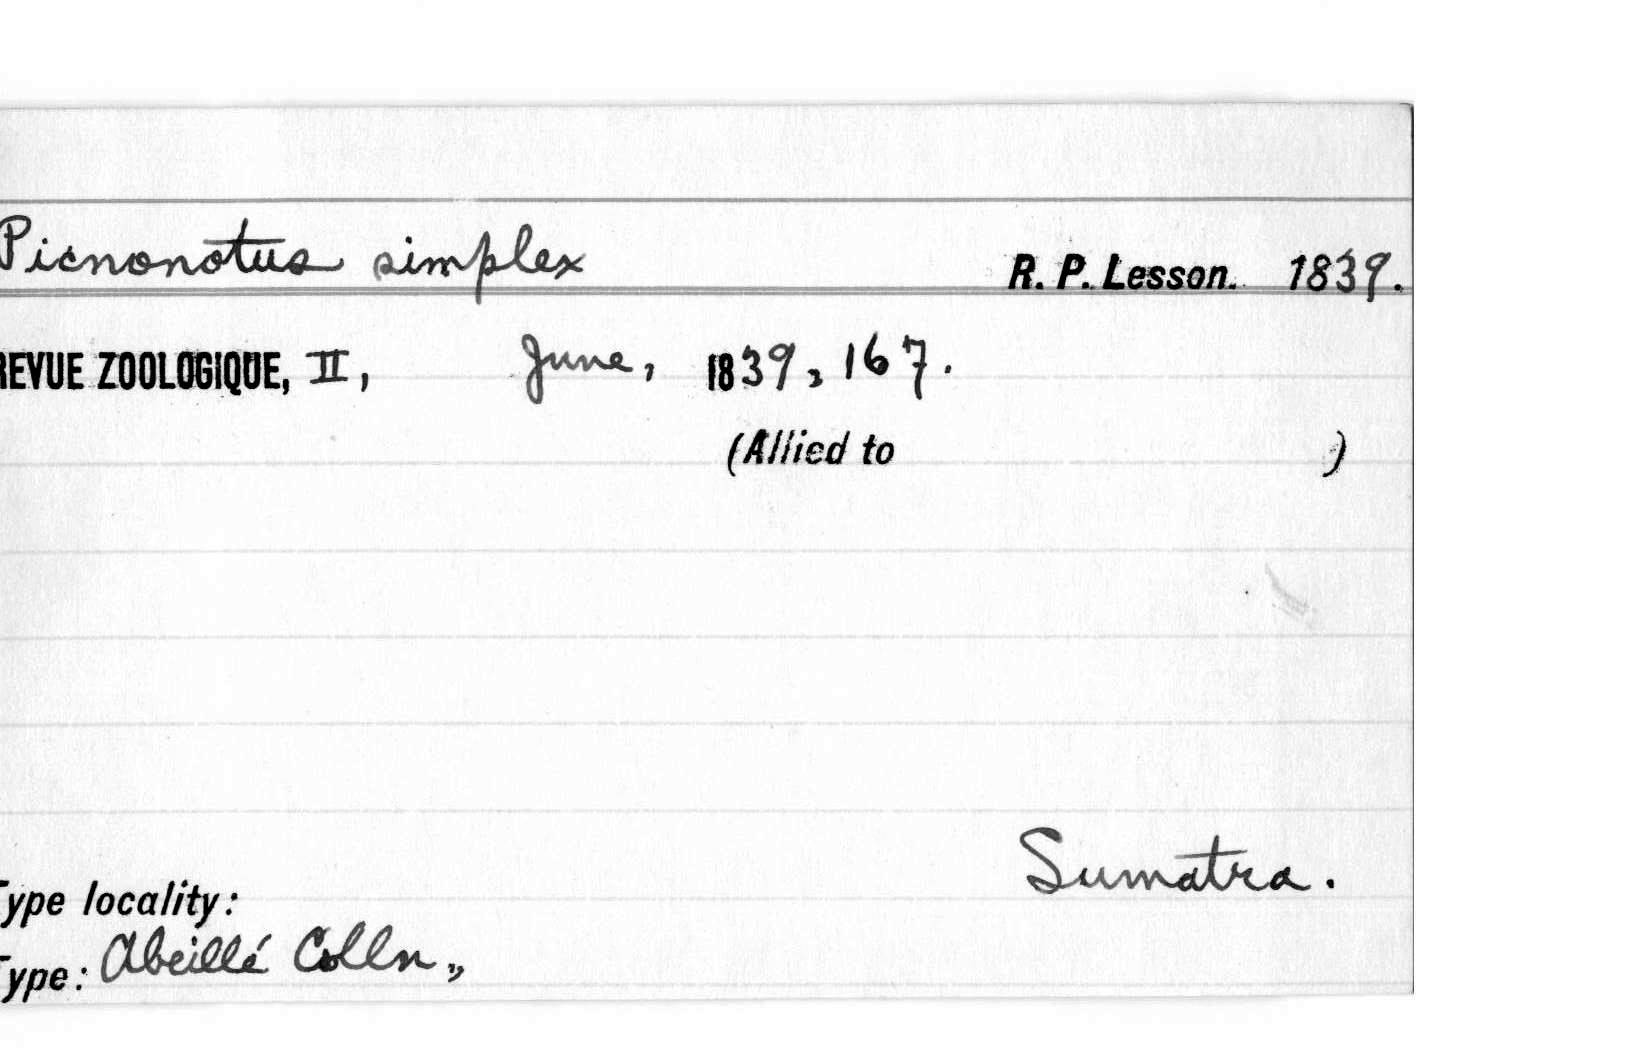 Picnonotus simplex R. P. Lesson. 1839.
REVUE ZOOLOGIQUE, II, June, 1839, 167.
(Allied to )
Type locality: Sumatra.
Type: Abeillé Colln.,